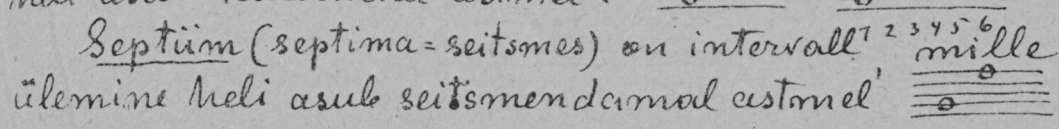 Septiim (septima = seitsmes) on intervall 1 2 3 4 5 6 mille
ülemine heli asub seitsmendamal astmel